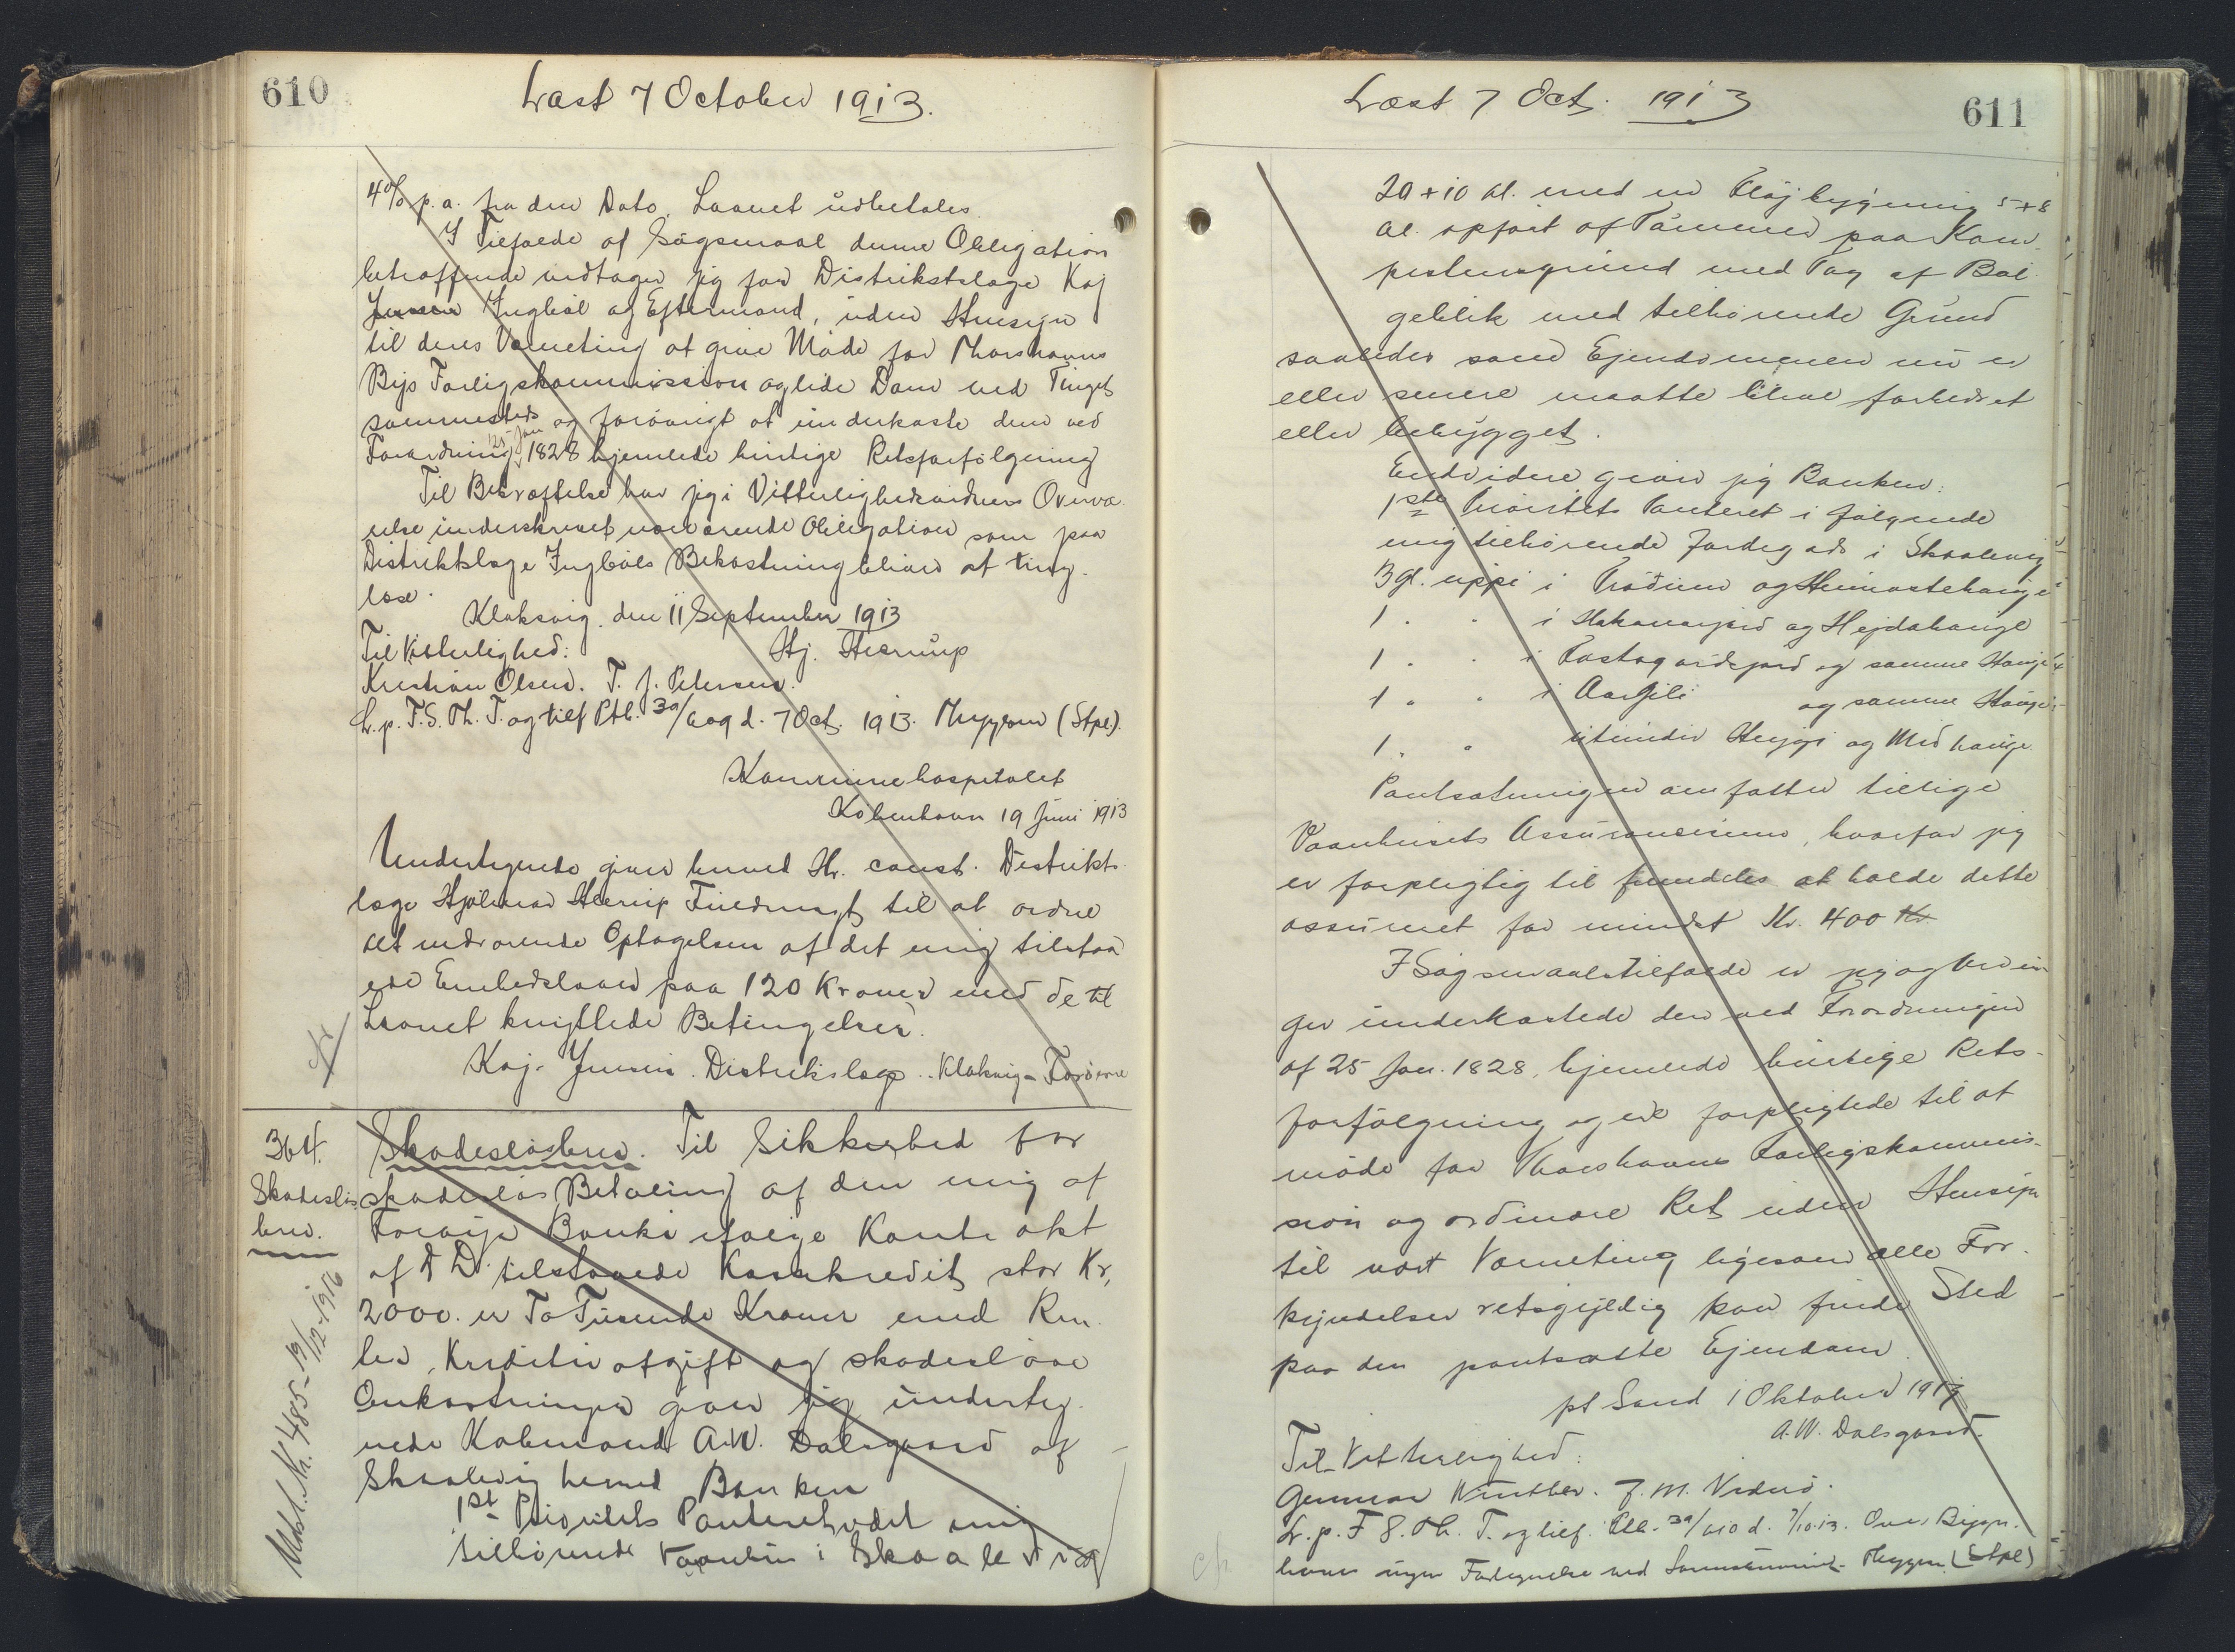 610
Læst 7 October 1913.
4% p.a. fra den Dato Laanet udbetales.
I Tilfælde af Søgsmaal denne Obligation
betræffende vedtager jeg for Distrikstslæge Kaj
Jensen Ingbøl og Eftermand, uden Hensyn
til deres Værneting at give Møde for Thorshavns
Byes Forligskommission og lide Dom ved Tinget
sammesteds og forøvrigt at underkaste dem ved
Forordning 25 Jan 1828 hjemlede hurtige Retsforfølgning
Til Bekræftelse har jeg i Vitterlighedsvidners Overvæ
relse underskrevet nærværende Obligation som paa
Distriktslæge Ingbøls Bekostning bliver at ting-
læse.
Klaksvig. den 11 September 1913
Til Vitterlighed: Hj. Heerup
Kristian Olsen. T. J. Petersen.
L.p. F.S. Th. T. og tilf Ptb. 3a/609 d. 7 Oct. 1913. (Stpl).
Kommunehospitalet
København 19 Juni 1913
Undertegnede giver herved Hr. const. Distrikts-
læge Hjalmar Heerup Fuldmagt til at ordne
alt vedrørende Optagelsen af det mig tilstaa
ede Embedslaan paa 120 Kroner med de til
Laanet knyttede Betingelser.
Kaj Jensen. Distrikslæge. Klaksvig - Færøerne
364.
Skadesløs
brev.
Udsl. Nr. 485 - 19/12-1916
Skadesløsbrev. Til Sikkerhed for
skadesløs Betaling af den mig af
Føroya Banki ifølge Konto akt
af D. D. tilstaaede Kassekredit stor Kr.
2000. er To Tusende Kroner med Ren
ter, Kreditivafgift og skadesløse
Omkostninger giver jeg underteg-
nede Købmand A.W. Dalsgaard af
Skaalevig herved Banken
1st Prioritets Panteret udi det mig
tilhørende Vaanhus i Skaalevig
Læst 7 Oct. 1913
611
20 + 10 Al. med en Fløjbygning 5 + 8
Al. opført af Tømmer paa Kam-
pestensgrund med Tag af Bøl-
geblik med tilhørende Grund
saaledes som Ejendommen nu er
eller senere maatte blive forbedret
eller bebygget.
Endvidere giver jeg Banken:
1ste Prioritets Panteret i følgende
mig tilhørende Jordegods i Skaalevig
3 Gl. uppi i Trøðum og Heimastehauge
1 . . i Hakonarjord og Hejdahauge
1 . . i Tostagardsjord og samme Hauge
1 . . i Aargili og samme Hauge
1 . . utundir Heyggi og Midhauge
Pantsætningen omfatter tillige
Vaanhusets Assurancesum, hvorfor jeg
er forpligtig til fremdeles at holde dette
assureret for mindst Kr. 400 Kr
I Søgsmaalstilfælde er jeg og Arvin
ger underkastede den ved Forordningen
af 25 Jan. 1828, hjemlede hurtige Rets-
forfølgning og ere forpligtede til at
møde for Thorshavns Forligskommis-
sion og ordinære Ret uden Hensyn
til vort Værneting ligesom alle For-
kyndelser retsgyldig kan finde Sted
paa den pantsatte Ejendom.
pt Sand 1 Oktober 1913
A.W. Dalsgaard.
Til Vitterlighed:
Gunnar Winther. J.M. Viderø.
L.p. F S. Th. T. og tilf. Ptb. 3a/610 d. 7/10.13. Over Bygn.
haves ingen Fortegnelse ved Sorenskriveriet. (Stpl)